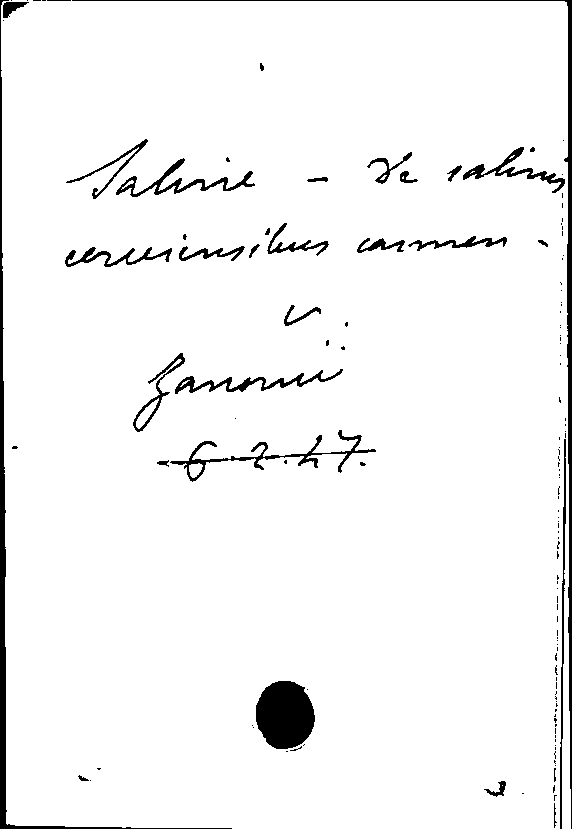 Saline - De salinis
cerviensibus carmen -
v.
Zanonii
6.2.47.